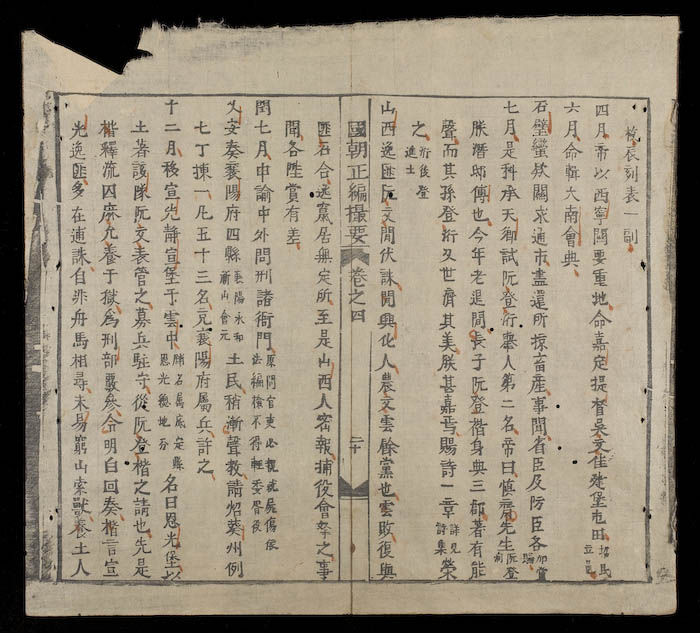 辰刻表一副
四月帝以西寧關要重地命嘉定提督吳文佳建堡屯田招民立邑
六月命輯大南會典
石壁蠻欵關求通市盡還所掠畜產事聞省臣及防臣各加賞賜
七月是科承天鄉試阮登衍舉人第二名帝曰慎齋先生阮登制
朕潛邸傅也今年老退閒長子阮登楷身典三郡著有能
聲而其孫登衍又世濟其美朕甚嘉焉賜詩一章詳見詩集榮
之衍後登進士
山西逸匪阮文閒伏誅閒興化人農文雲餘黨也雲敗復與
國朝正編撮要 卷之四 二十
匪石合逃竄居無定所至是山西人密報捕役會拏之事
聞各陞賞有差
閏七月申諭中外問刑諸衙門原問官吏必親視屍傷依法編檢不得輕委胥役
乂安奏襄陽府四縣襄陽永和山會元土民稍漸聲教請炤葵州例
七丁揀一凡五十三名充襄陽府屬兵許之
十二月移宣光靜宣堡于雲中勝石屬底定縣恩光總地分名曰恩光堡以
土著該隊阮文表管之募兵駐守從阮登楷之請也先是
楷釋流囚麻允養于獄爲刑部覆參令明白回奏楷言宣
光逸匪多在逋誅自非舟馬相尋未易窮山索獸養土人